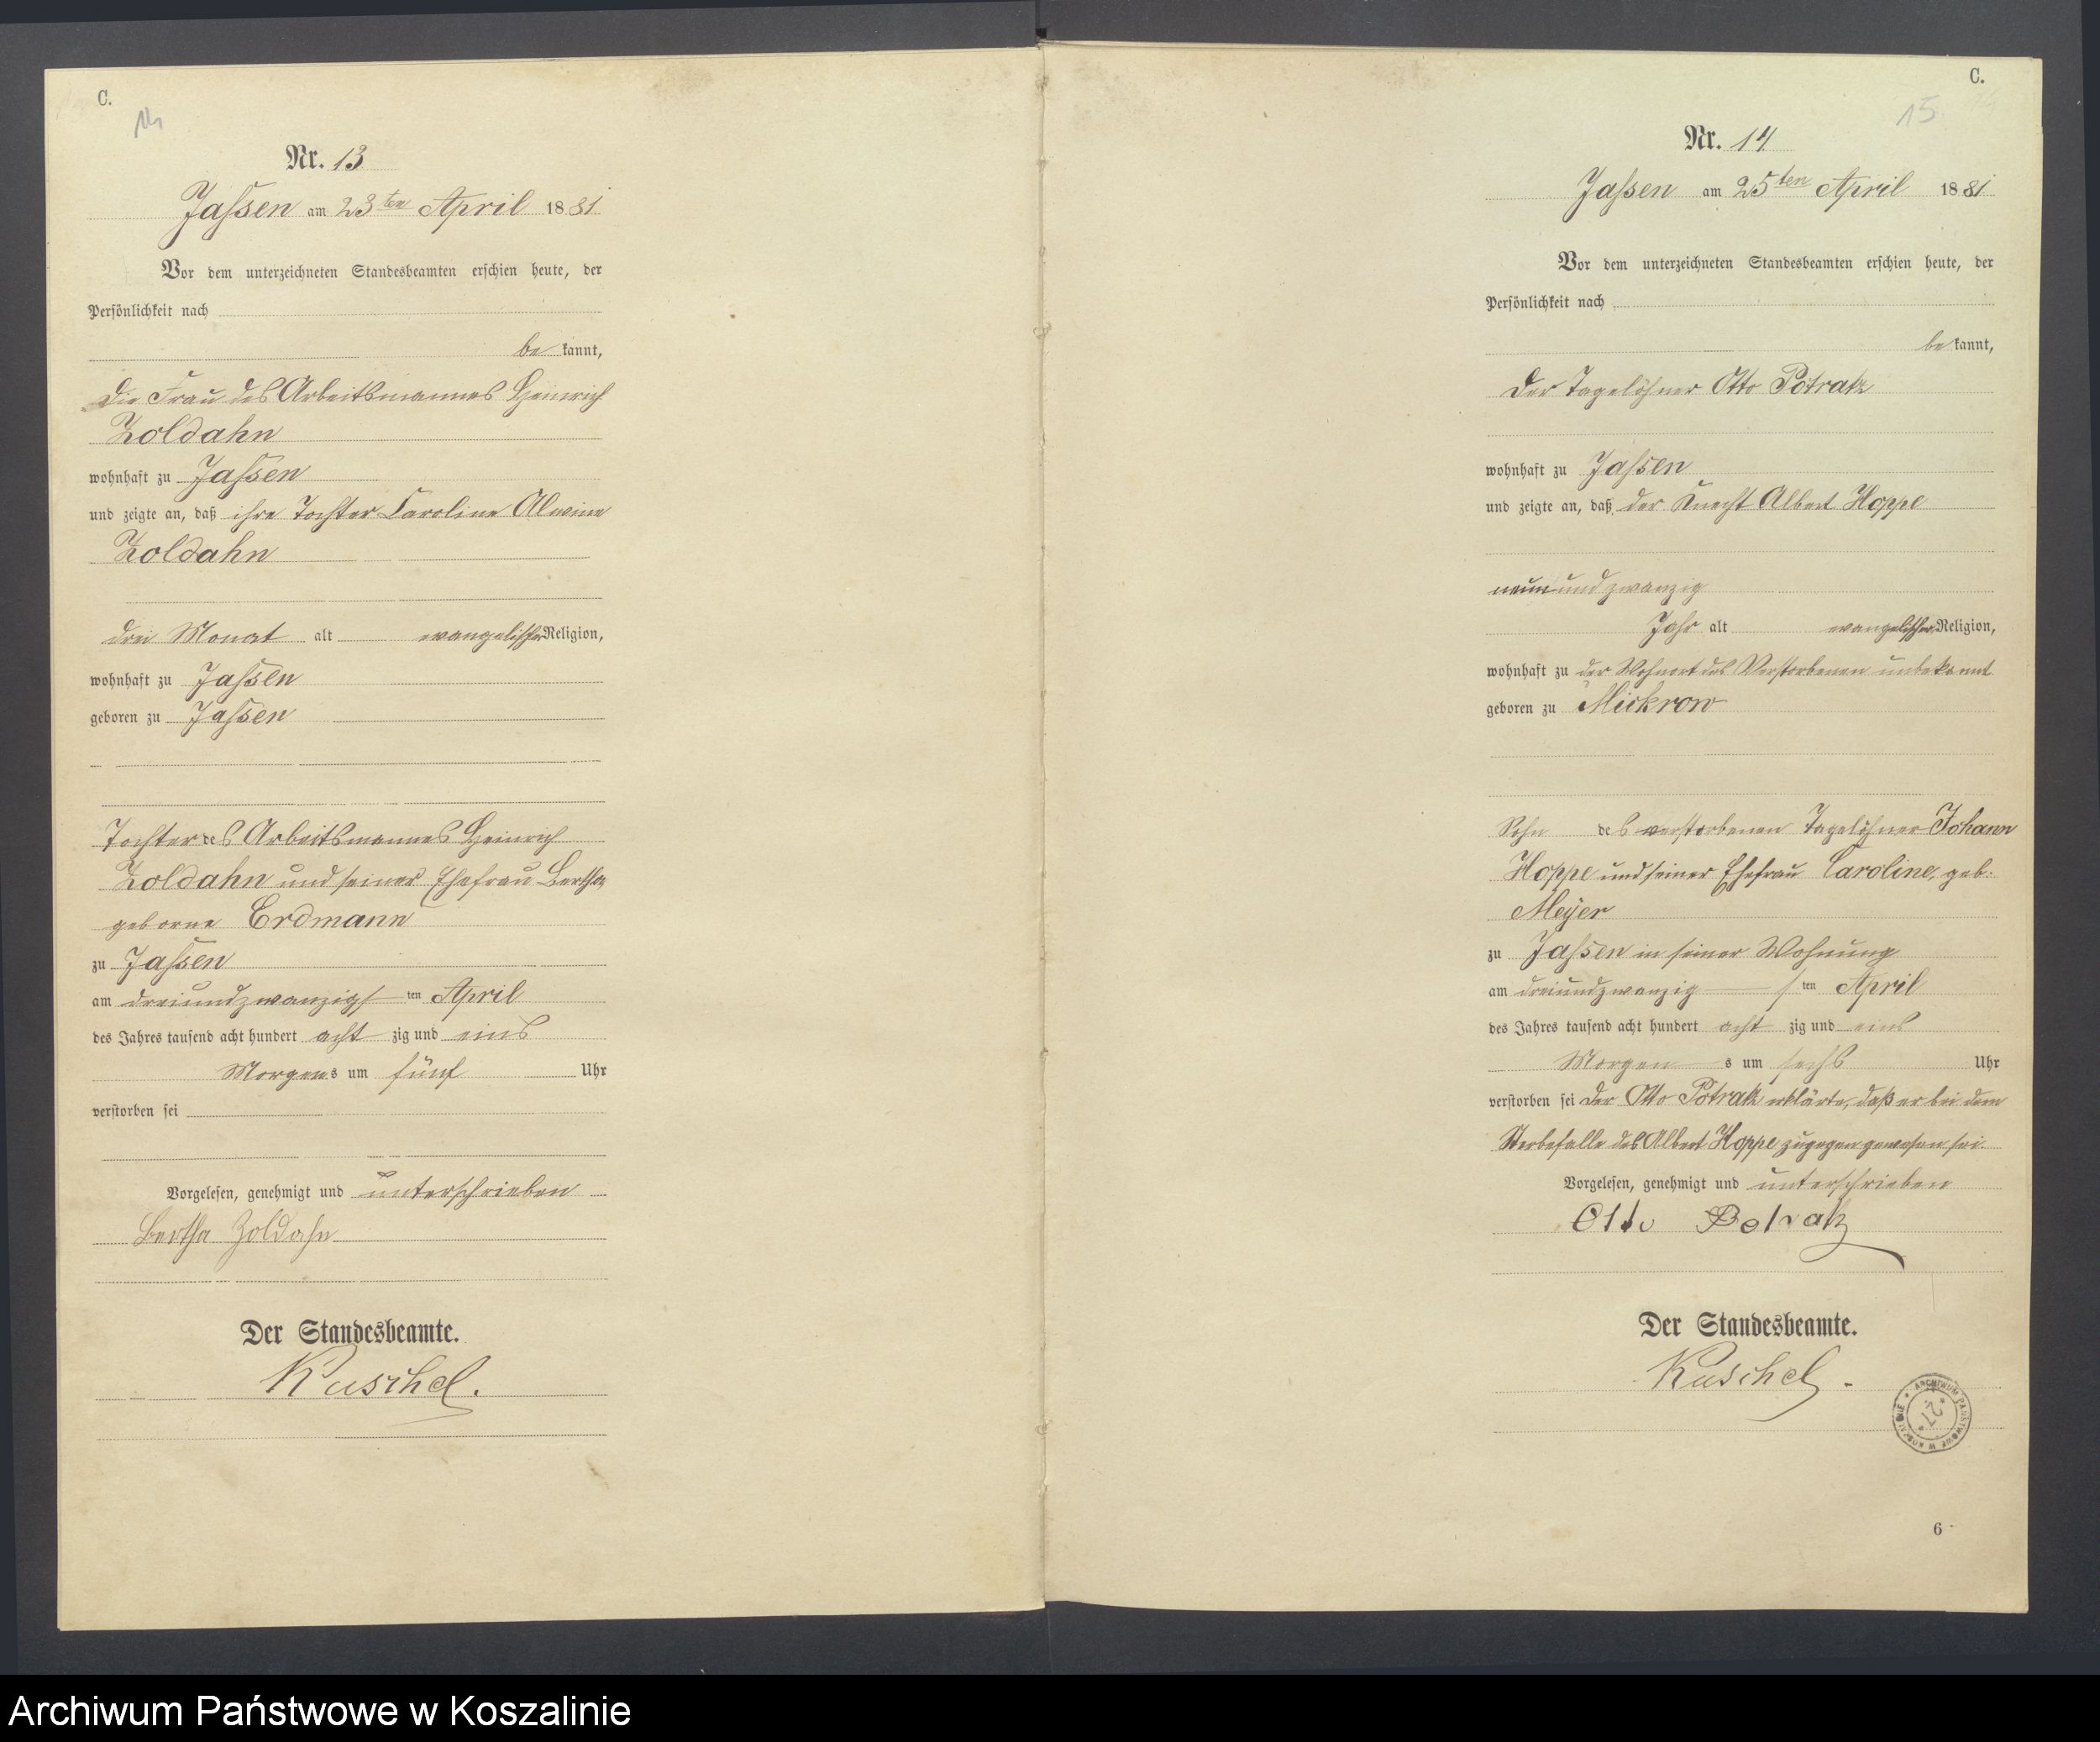 C.
14
Nr. 13
Jassen am 23ten April 1881
Vor dem unterzeichneten Standesbeamten erschien heute, der
Persönlichkeit nach
be kannt,
die Frau des Arbeitsmannes Heinrich
Zoldahn
wohnhaft zu Jassen
und zeigte an, daß ihre Tochter Caroline Alwine
Zoldahn
drei Monat alt evangelischer Religion,
wohnhaft zu Jassen
geboren zu Jassen
Tochter des Arbeitsmannes Heinrich
Zoldahn und seiner Ehefrau Bertha
geborne Erdmann
zu Jassen
am dreiundzwanzigs ten April
des Jahres tausend acht hundert acht zig und eins
Morgens um fünf Uhr
verstorben sei
Vorgelesen, genehmigt und unterschrieben
Bertha Zoldahn
Der Standesbeamte.
Kuschel.
C.
15
Nr. 14
Jassen am 25ten April 1881
Vor dem unterzeichneten Standesbeamten erschien heute, der
Persönlichkeit nach
be kannt,
der Tagelöhner Otto Potratz
wohnhaft zu Jassen
und zeigte an, daß der Knecht Albert Hoppe
neunundzwanzig
Jahr alt evangelischer Religion,
wohnhaft zu der Wohnort des Verstorbenen unbekannt
geboren zu Mickrow
Sohn des verstorbenen Tagelöhner Johann
Hoppe und seiner Ehefrau Caroline, geb:
Meyer
zu Jassen in seiner Wohnung
am dreiundzwanzig s ten April
des Jahres tausend acht hundert acht zig und eins
Morgen s um sechs Uhr
verstorben sei der Otto Potratz erklärte, daß er bei dem
Sterbefalle des Albert Hoppe zugegen gewesen sei.
Vorgelesen, genehmigt und unterschrieben
Otto Potratz
Der Standesbeamte.
Kuschel.
ARCHIWUM PAŃSTWOWE W KOSZALINIE
27
6
Archiwum Państwowe w Koszalinie